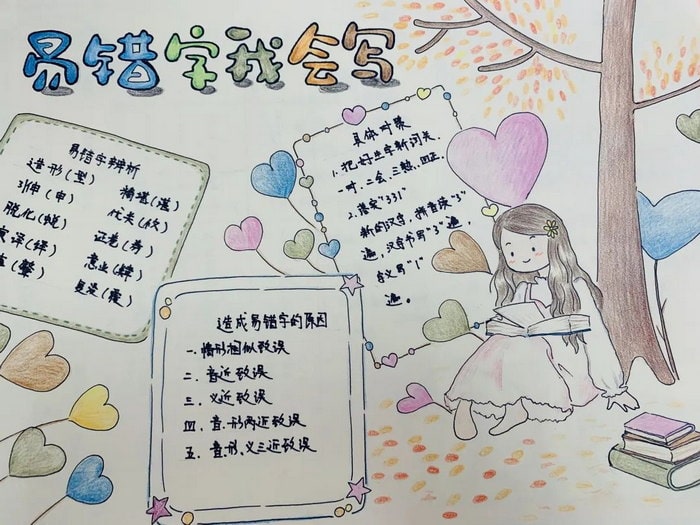 易错字我会写
易错字辨析
造形(型)
引伸(申)
脱化(蜕)
译(绎)
(馨)
优秀(
正名(
意业(肄)
(霞)
具体对策
1.把好生字新词关.
一对.二会.三熟.四正.
2.落实"331"
新的汉字,拼音读"3"
遍,汉字书写"3"遍,
含义写"1"
遍。
造成易错字的原因
一.情形相似致误
二.音近致误
三.义近致误
四.音.形两近致误
五.音.形、义三近致误